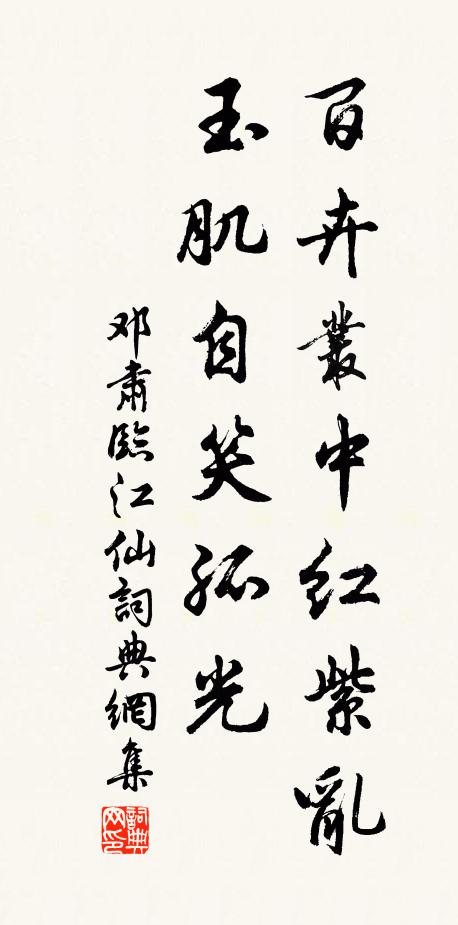 百卉叢中红紫亂
玉肌自笑孤光
邓肅臨江仙詞典網集
詞典网印